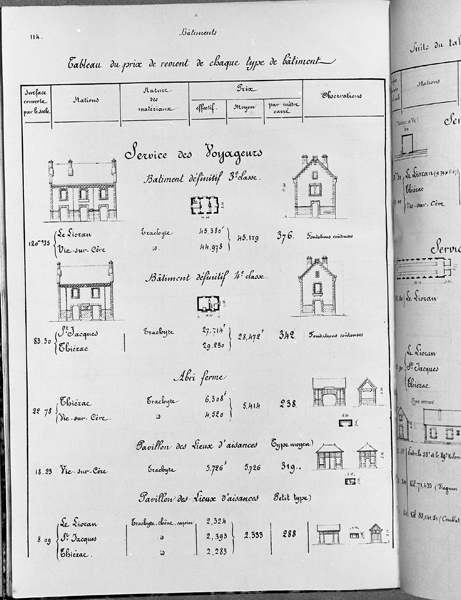 114.
Bâtiments
Tableau du prix de revient de chaque type de bâtiment
Surface couverte par le socle
Stations
Nature des matériaux
Prix
effectif.
Moyen
par mètre carré
Observations
Service des Voyageurs
Bâtiment définitif 3e classe.
120m²35
Le Lioran
Vic-sur-Cère
Trachyte
d°
45,380f
44,978
45,179
376.
Fondations coûteuses
Bâtiment définitif 4e classe.
83.30
St Jacques
Thiézac
Trachyte
27,714f
29,230
28,472f
342
Fondations coûteuses
Abri ferme
22 78
Thiézac
Vic-sur-Cère
Trachyte
d°
6,308f
4,520
5,414
238
Pavillon des Lieux d'aisances (Type moyen)
18.23
Vic-sur-Cère
Trachyte
5,726f
5,726
319..
Pavillon des Lieux d'aisances (Petit type)
8 09
Le Lioran
St Jacques
Thiézac.
Trachyte, chêne, sapin
d°
d°
2,324
2,393
2,283
2,333
288
Suite du tab
Stations
Ser
Le Lioran
Thiézac
Vic-sur-Cère
Service
Le Lioran
Le Lioran
St Jacques
Thiézac